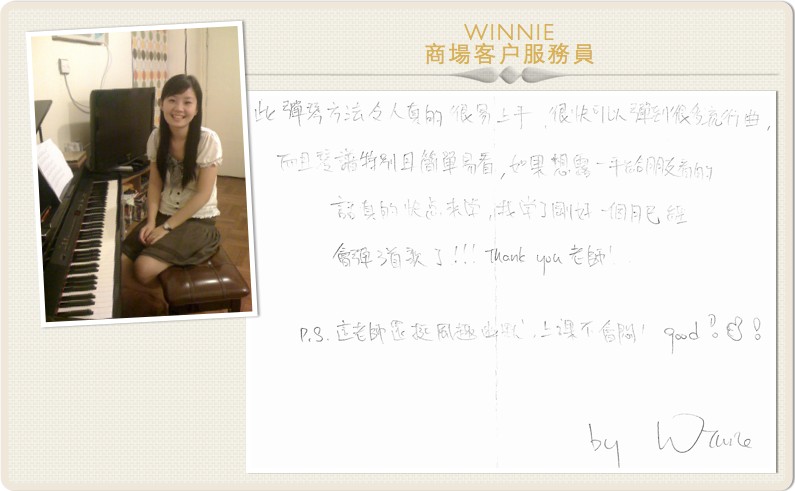 WINNIE
商場客户服務員
此彈琴方法令人真的很易上手,很快可以彈到很多流行曲,
而且琴譜特別且簡單易看,如果想露一手給朋友看的
話真的快点來學,我學了剛好一個月已經
會彈3首歌了!!! Thank you 老師!
P.S. 這老師還挺風趣幽默,上課不會悶! good!
by Winnie